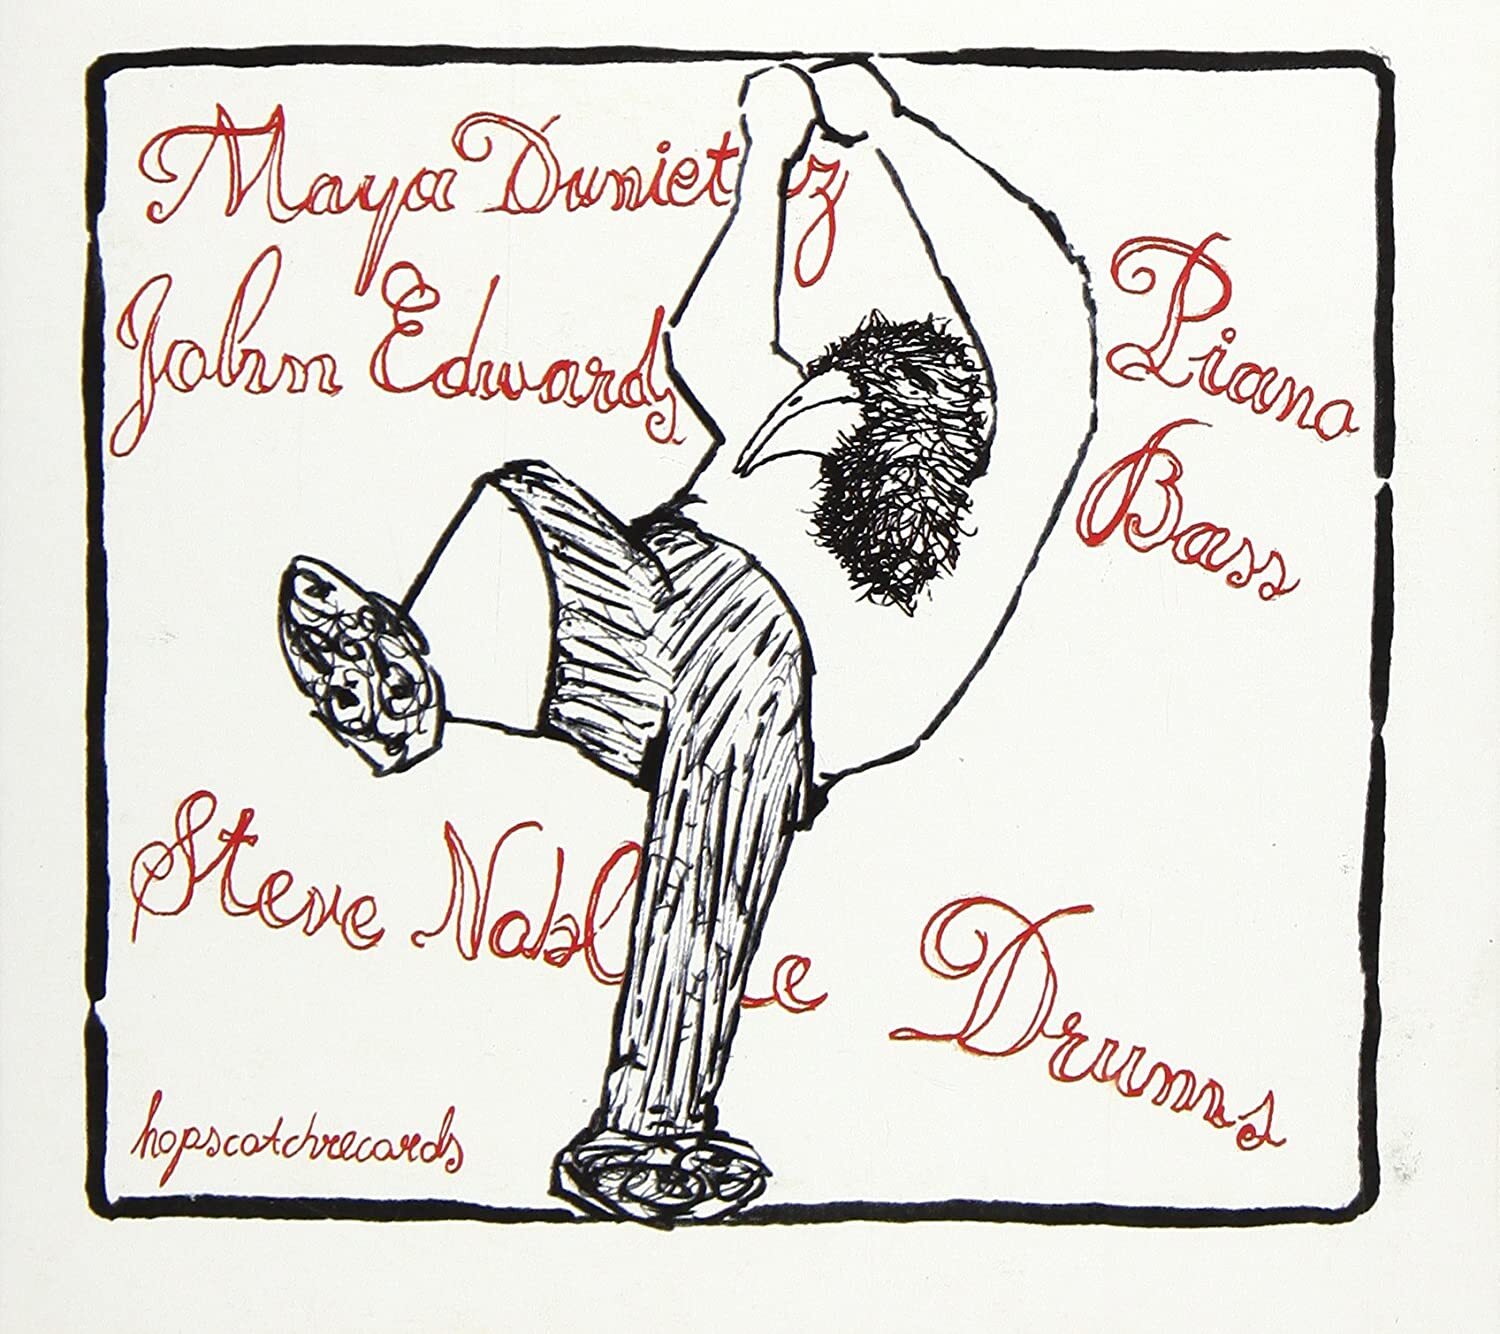 Maya Dunietz
John Edwards
Piano
Bass
Steve Noble
Drums
hopscotchrecords